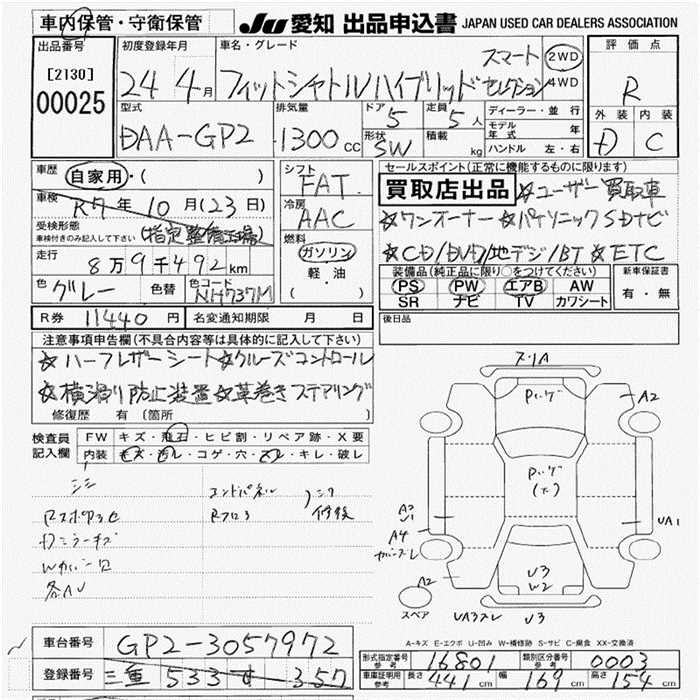 車内保管・守衛保管
JU 愛知 出品申込書 JAPAN USED CAR DEALERS ASSOCIATION
出品番号
[2130]
00025
初度登録年月
24 4月
車名・グレード
フィットシャトルハイブリッド スマートセレクション
2WD
4WD
評価点
R
外装 内装
D C
型式
DAA-GP2
排気量
1300 cc
ドア 5
形状 SW
定員 5人
積載 kg
ディーラー・並行
モデル年式 年
ハンドル 左・右
車歴 自家用・( )
車検 R7年10月(23日)
受検形態
車検付きのみ記入して下さい (指定整備工場)
走行 8万9千492km
色 グレー
色替
色コード NH737M
シフト FAT
冷房 AAC
燃料
ガソリン
軽油
( )
セールスポイント(正常に機能するものに限ります)
買取店出品 ☆ユーザー買取車
☆ワンオーナー ☆パナソニックSDナビ
☆CD/DVD/地デジ/BT ☆ETC
装備品(純正品に限り○をつけてください)
PS PW エアB AW
SR ナビ TV カワシート
新車保証書
有・無
R券 11440円
名変通知期限 月 日
後日品
注意事項申告欄(不具合内容等は具体的に記入して下さい)
☆ハーフレザーシート☆クルーズコントロール
☆横滑り防止装置☆革巻きステアリング
修復歴 有 〔箇所 〕
検査員記入欄
FW キズ・飛石・ヒビ割・リペア跡・X要
内装 キズ・汚レ・コゲ・穴・スレ・キレ・破レ
コンドパネル
Rフロア
修復
Dミラーキズ
各AU
スリA
A2
A3
U1
A4
UA1
A2
U3
W2
スペア
UA3スレ
U3
A-キズ E-エクボ U-凹み W-補修跡 S-サビ C-腐食 XX-交換済
車台番号 GP2-3057972
登録番号 三重 533 す 357
形式指定番号 参考 16801
類別区分番号 参考 0003
車庫証明用 参考 長さ 441cm 幅 169cm 高さ 154cm